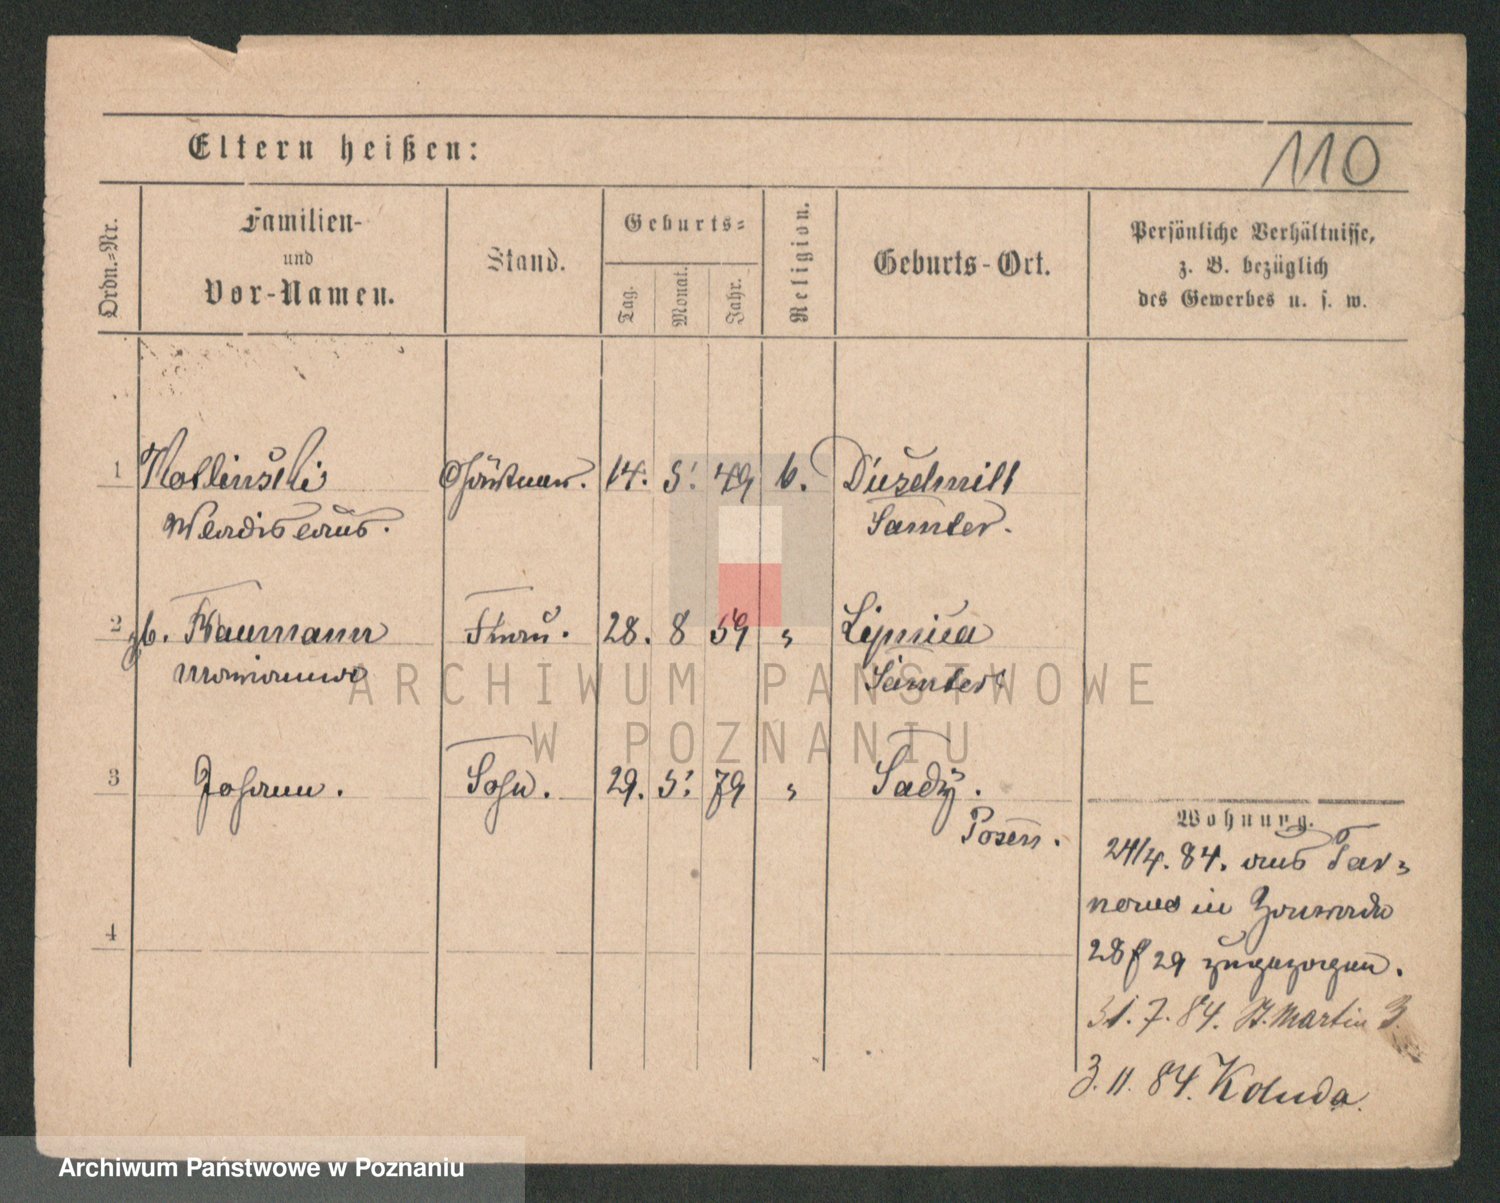 Eltern heißen:
110
Ordn.-Nr.
Familien-
und
Vor-Namen.
Stand.
Geburts-
Tag.
Monat.
Jahr.
Religion.
Geburts-Ort.
Persönliche Verhältnisse,
z. B. bezüglich
des Gewerbes u. s. w.
1 14. 5. 49 k.
Wladislaus. Samter.
2 gb. Naumann Frau. 28. 8 59 " Lipnica
Marianna Samter
3 Johann. Sohn. 29. 5. 79 " Sady.
Posen.
4
Wohnung.
24/4. 84. aus Tar-
nowo in Zawade
28/29 zugezogen.
31. 7. 84. St. Martin 3.
3. 11. 84. Koluda.
ARCHIWUM PAŃSTWOWE
W POZNANIU
Archiwum Państwowe w Poznaniu